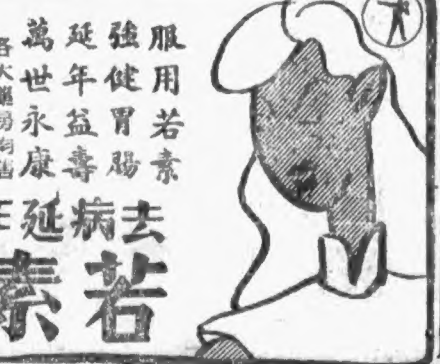 服用若素
強健胃腸
延年益壽
萬世永康
各大藥房均售
去病延年
若素